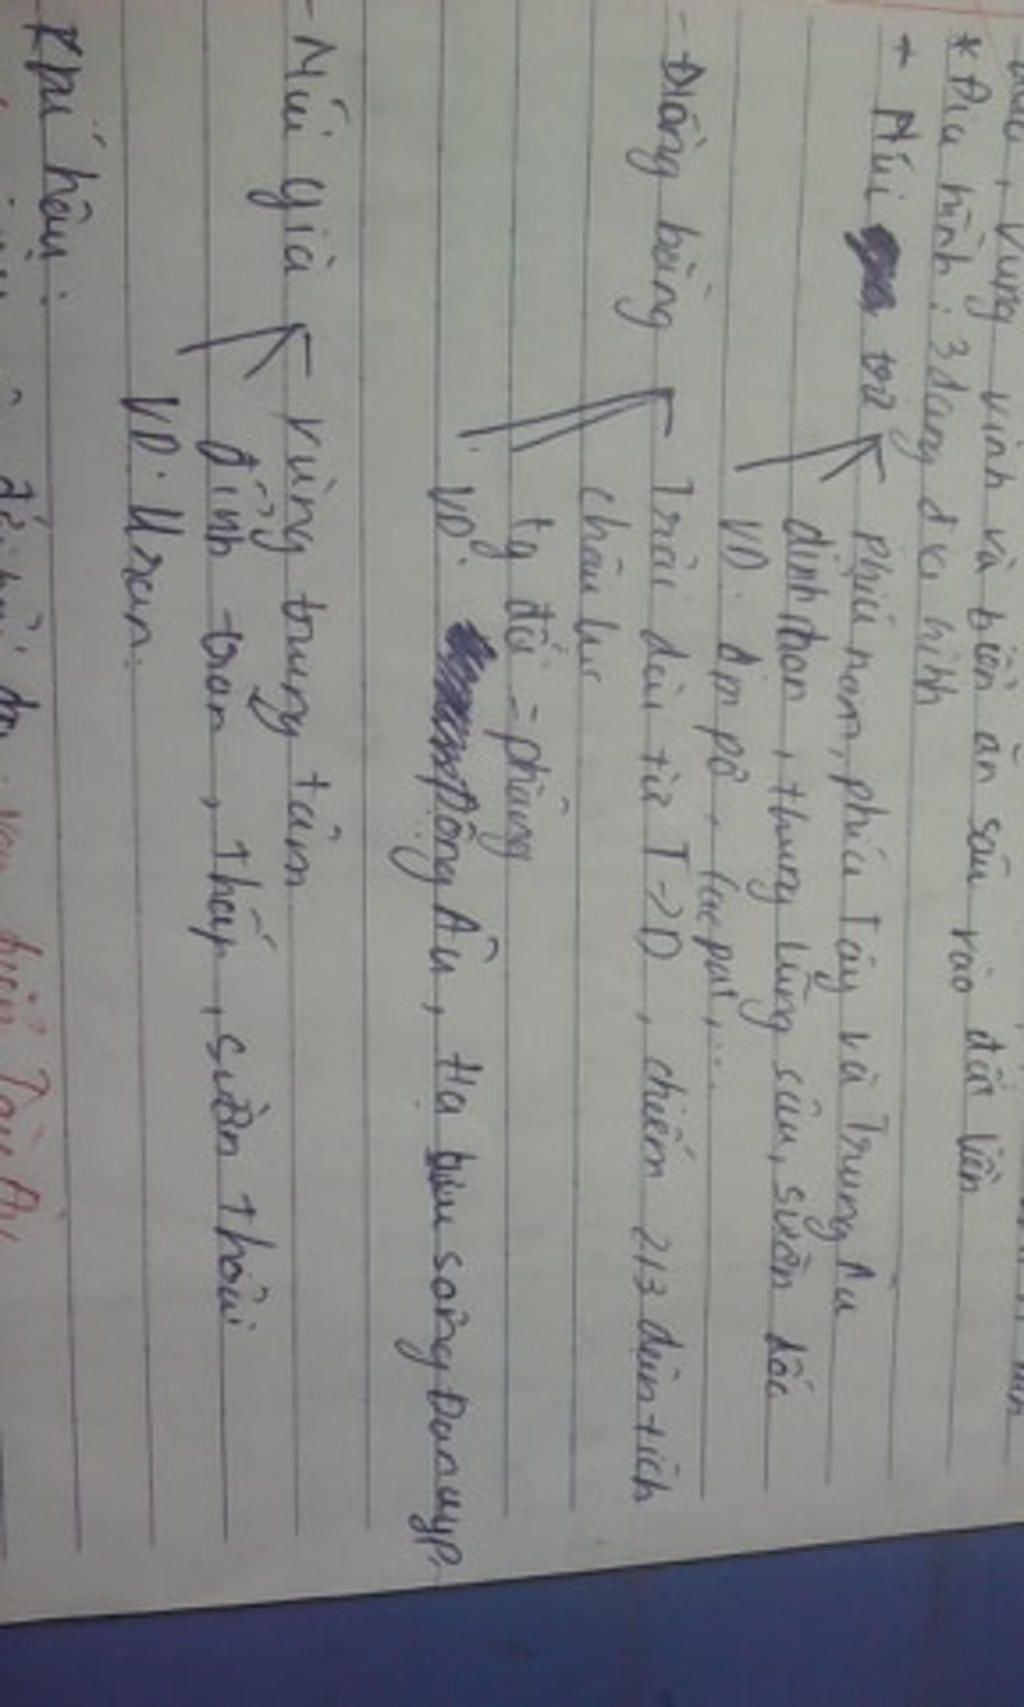 vùng vịnh và biển ăn sâu vào đất liền
* Địa hình: 3 dạng địa hình
+ Núi trẻ
phía nam, phía Tây và Trung Âu
đỉnh nhọn, thung lũng sâu, sườn dốc
VD: An pơ, Cacpat,...
- Đồng bằng
Trải dài từ T->Đ, chiếm 2/3 diện tích
châu lục
tg đối - phẳng
VD: Đông Âu, Hạ lưu sông Đanuyp.
- Núi già
vùng trung tâm
đỉnh tròn, thấp, sườn thoải
VD: Uran.
Khí hậu: